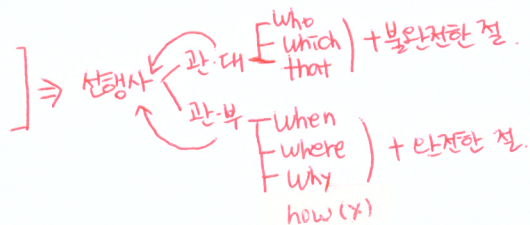 ] ⇒ 선행사
관·대 who
which
that
) + 불완전한 절.
관·부 when
where
why
) + 완전한 절.
how (x)